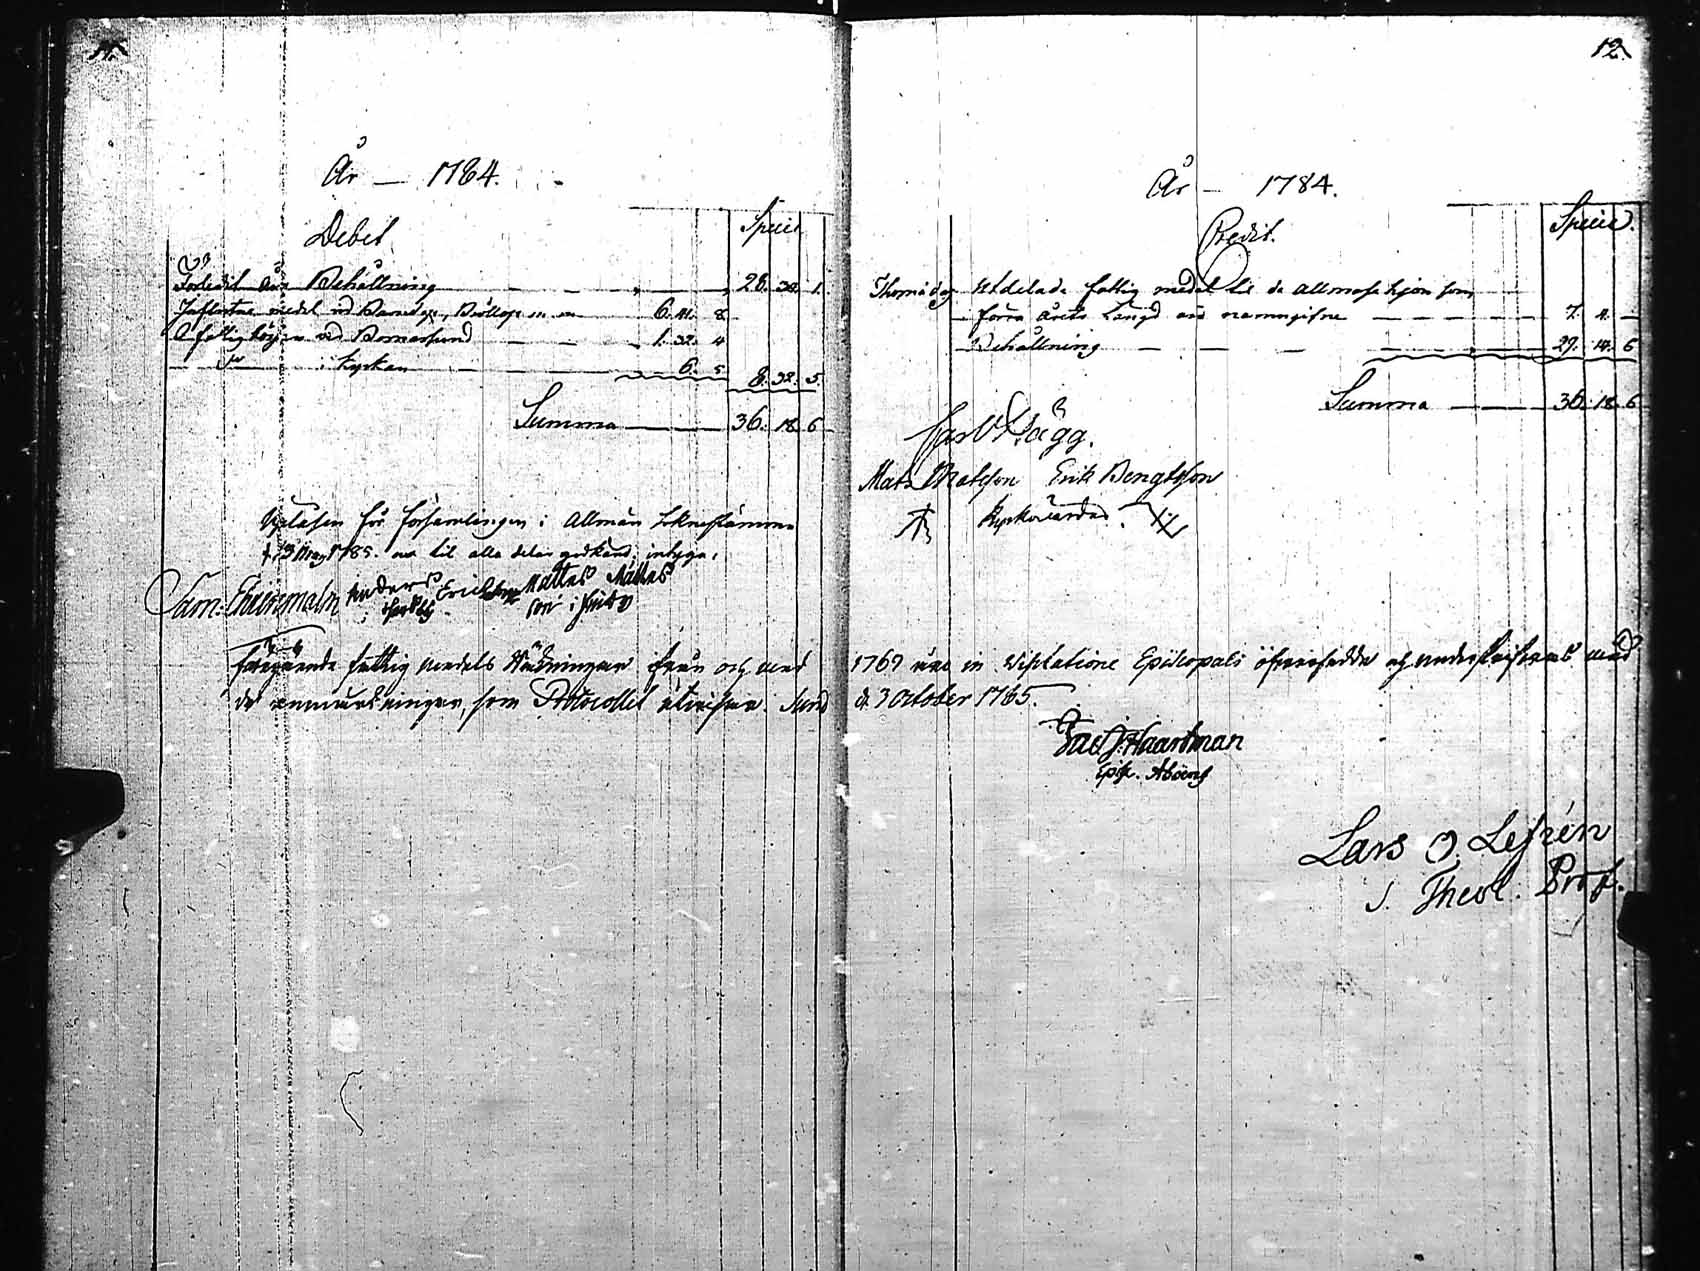 11.
År — 1784.
Debet
Specie
Förledit års Behållning 28. 34. 1.
Influtne medel vid Barndop, Bröllop 6. 41. 8.
fattigbössan vid Bomarsund 1. 32. 4
i kyrkan 6. 5. 8. 32. 5.
Summa 36. 18. 6
Upläsen för församlingen i Allmän Soknestämma
d. 13 Maj 1785. och til alla delar godkänd; intyga,
Sam: Ehrenmalm Anders Ericsson Mattes Mattes
son i Finby
Föregående fattig medels Räkningar ifrån och med
de anmärkningar, som Protocollet utvisar. Sund
12.
År — 1784.
Credit.
Specie.
Thomæ dag Utdelade fattig medel til de allmosehjon som
förra årets Längd äro namngifne 7. 4. —
Behållning 29. 14. 6
Summa 36. 18. 6
Carl Hägg.
Mats Matsson Erik Bengtsson
Kyrkovärdar.
1769 äro in Visitatione Episcopali öfversedde och underskrifvas med
d. 3 October 1785.
Jac. J. Haartman
Episc. Aboens
Lars O. Lefrén
S. Theol. Prof.